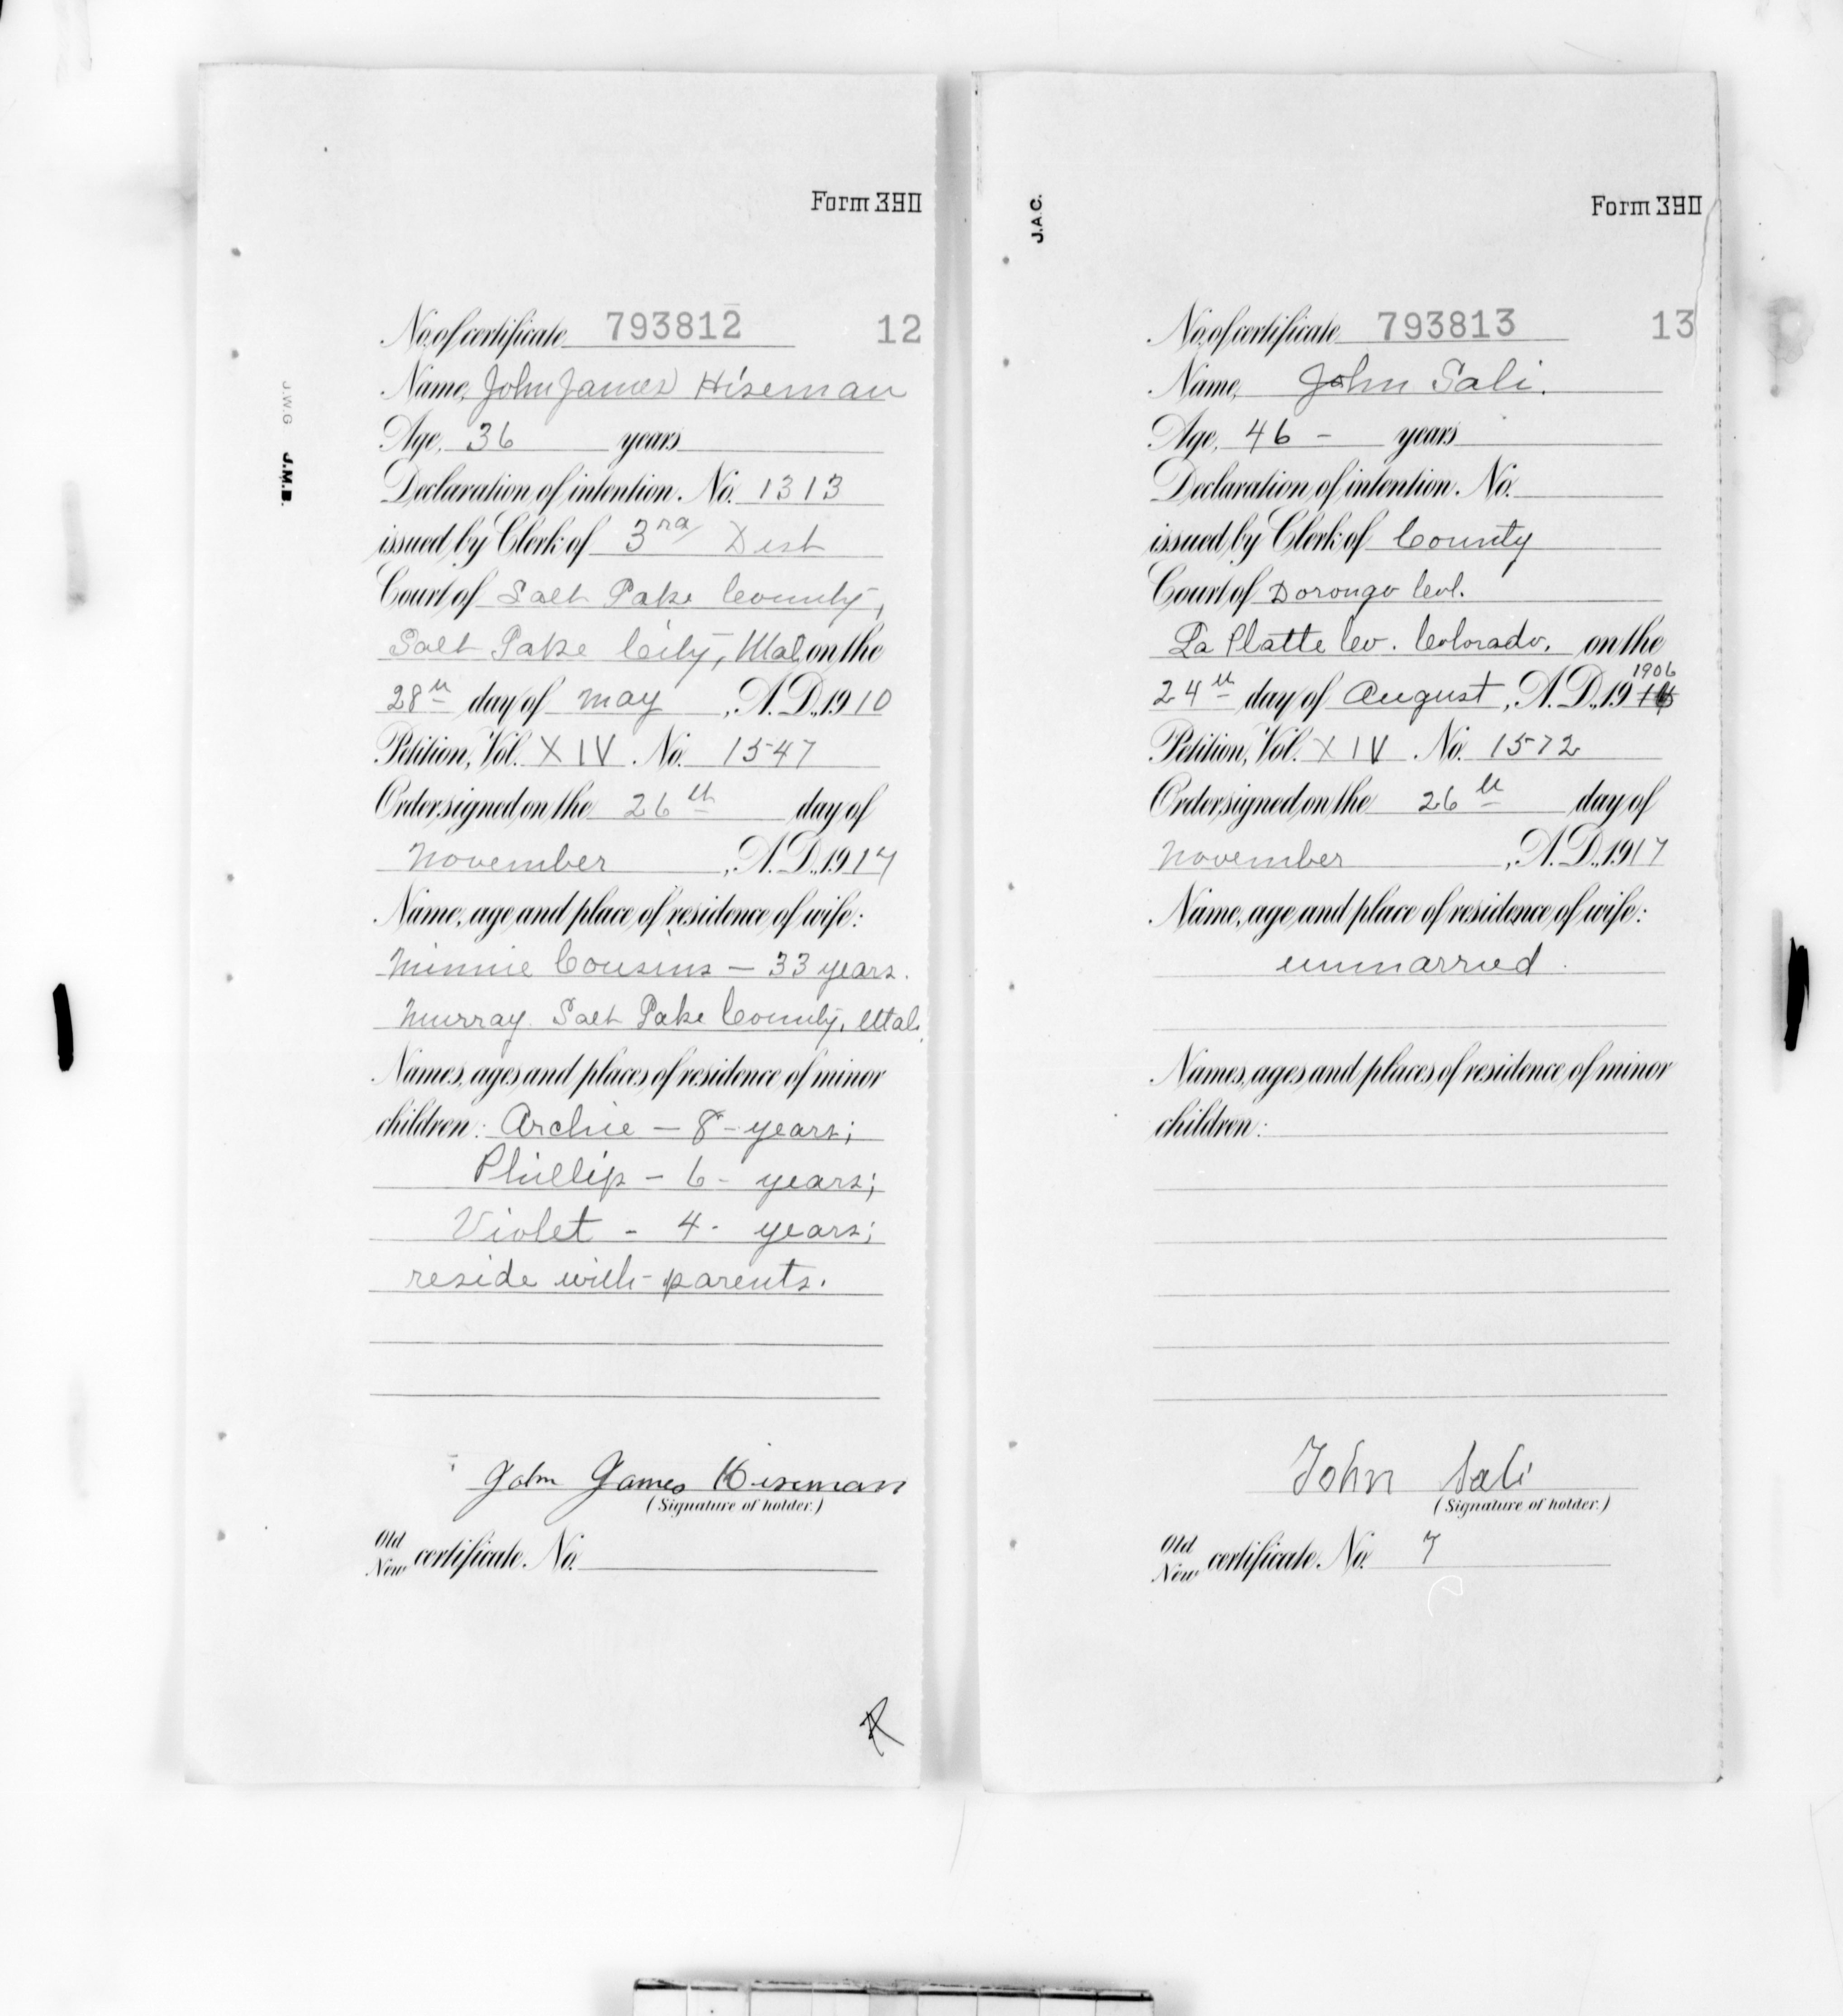 Form 390
No. of certificate 793812 12
Name, John James Hiseman
Age, 36 years
Declaration of intention. No. 1313
issued by Clerk of 3rd Dist
Court of Salt Lake County,
Salt Lake City, Utah on the
28th day of May, A.D., 1910
Petition, Vol. XIV. No. 1547
Order signed on the 26th day of
November, A.D., 1917
Name, age and place of residence of wife:
Minnie Cousins — 33 years.
Murray Salt Lake County, Utah.
Names, ages and places of residence of minor
children: Archie — 8 - years;
Phillip - 6 - years;
Violet - 4 - years;
reside with parents.
John James Hiseman
(Signature of holder.)
Old
New certificate. No.
J.W.G J.M.B.
Form 390
J.A.C.
No. of certificate 793813 13
Name, John Sali.
Age, 46 - years
Declaration of intention. No.
issued by Clerk of County
Court of Dorongo Col.
La Platte Co. Colorado, on the
1906
24th day of August, A.D., 19
Petition, Vol. XIV. No. 1572
Order signed on the 26th day of
November, A.D., 1917
Name, age and place of residence of wife:
unmarried.
Names, ages and places of residence of minor
children:
John Sali
(Signature of holder.)
Old
New certificate. No. 7